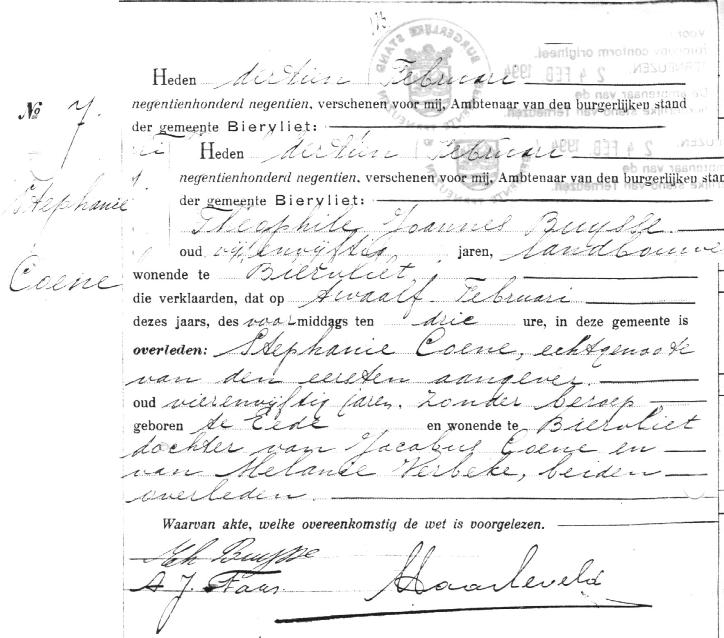 123.
Heden dertien Februari
negentienhonderd negentien, verschenen voor mij, Ambtenaar van den burgerlijken stand
der gemeente Biervliet:
No 7.
Heden dertien Februari
negentienhonderd negentien, verschenen voor mij, Ambtenaar van den burgerlijken stan
der gemeente Biervliet:
Stephanie
Coene
Theophile Joannes Buysse
oud vijfenvijftig jaren, landbouwe
wonende te Biervliet,
die verklaarden, dat op twaalf Februari
dezes jaars, des voormiddags ten drie ure, in deze gemeente is
overleden: Stephanie Coene, echtgenoote
van den eersten aangever.
oud vierenvijftig jaren, zonder beroep
geboren te Eede en wonende te Biervliet
dochter van Jacobus Coene en
van Melanie Verbeke, beiden
overleden.
Waarvan akte, welke overeenkomstig de wet is voorgelezen.
Th Buysse
A. J. Faas
Haarleveld